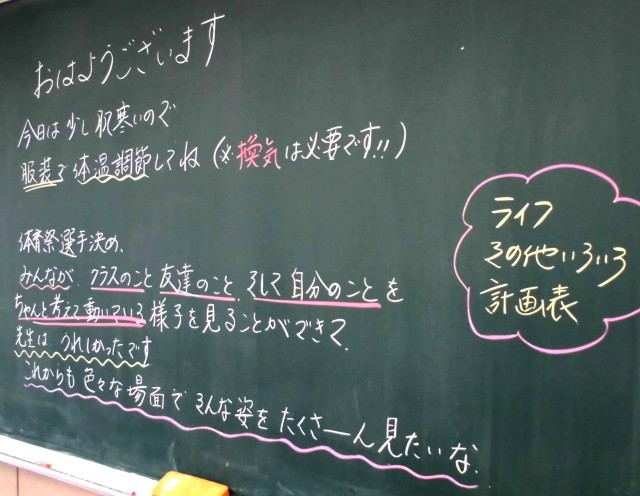 おはようございます
今日は少し肌寒いので
服装で体温調節してね(※換気は必要です!!)
体育祭選手決め、
みんなが、クラスのこと友達のこと、そして自分のことを
ちゃんと考えて動いている様子を見ることができて、
先生は うれしかったです
これからも色々な場面でそんな姿をたくさーん見たいな.
ライフ
その他いろいろ
計画表